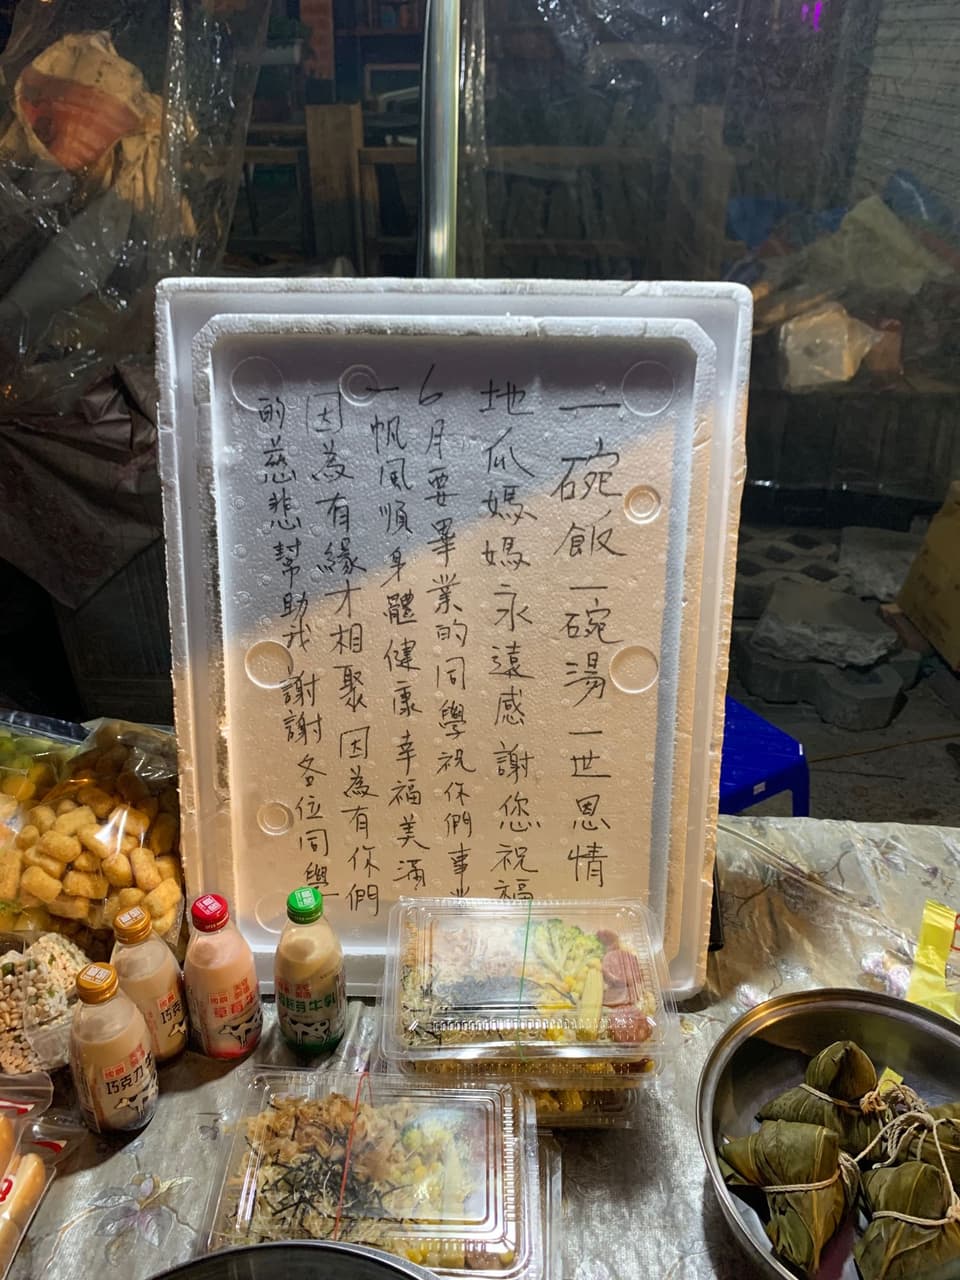 一碗飯一碗湯一世恩情
地瓜媽媽永遠感謝您祝福
6月要畢業的同學祝你們事業
一帆風順身體健康幸福美滿
因為有緣才相聚因為有你們
的慈悲幫助我謝謝各位同學
巧克力
巧克力牛
草莓牛
牛乳